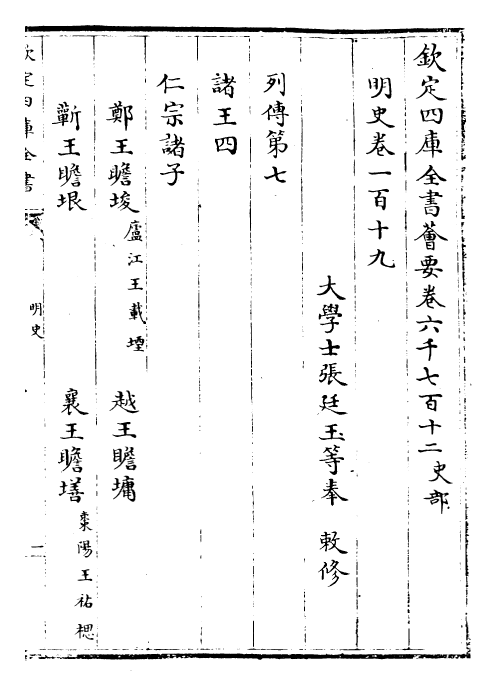 欽定四庫全書薈要卷六千七百十二 史部
明史卷一百十九
大學士張廷玉等奉 敕修
列傳第七
諸王四
仁宗諸子
鄭王瞻埈 廬江王載堙 越王瞻墉
蘄王瞻垠 襄王瞻墡 棗陽王祐楒
欽定四庫全書
明史